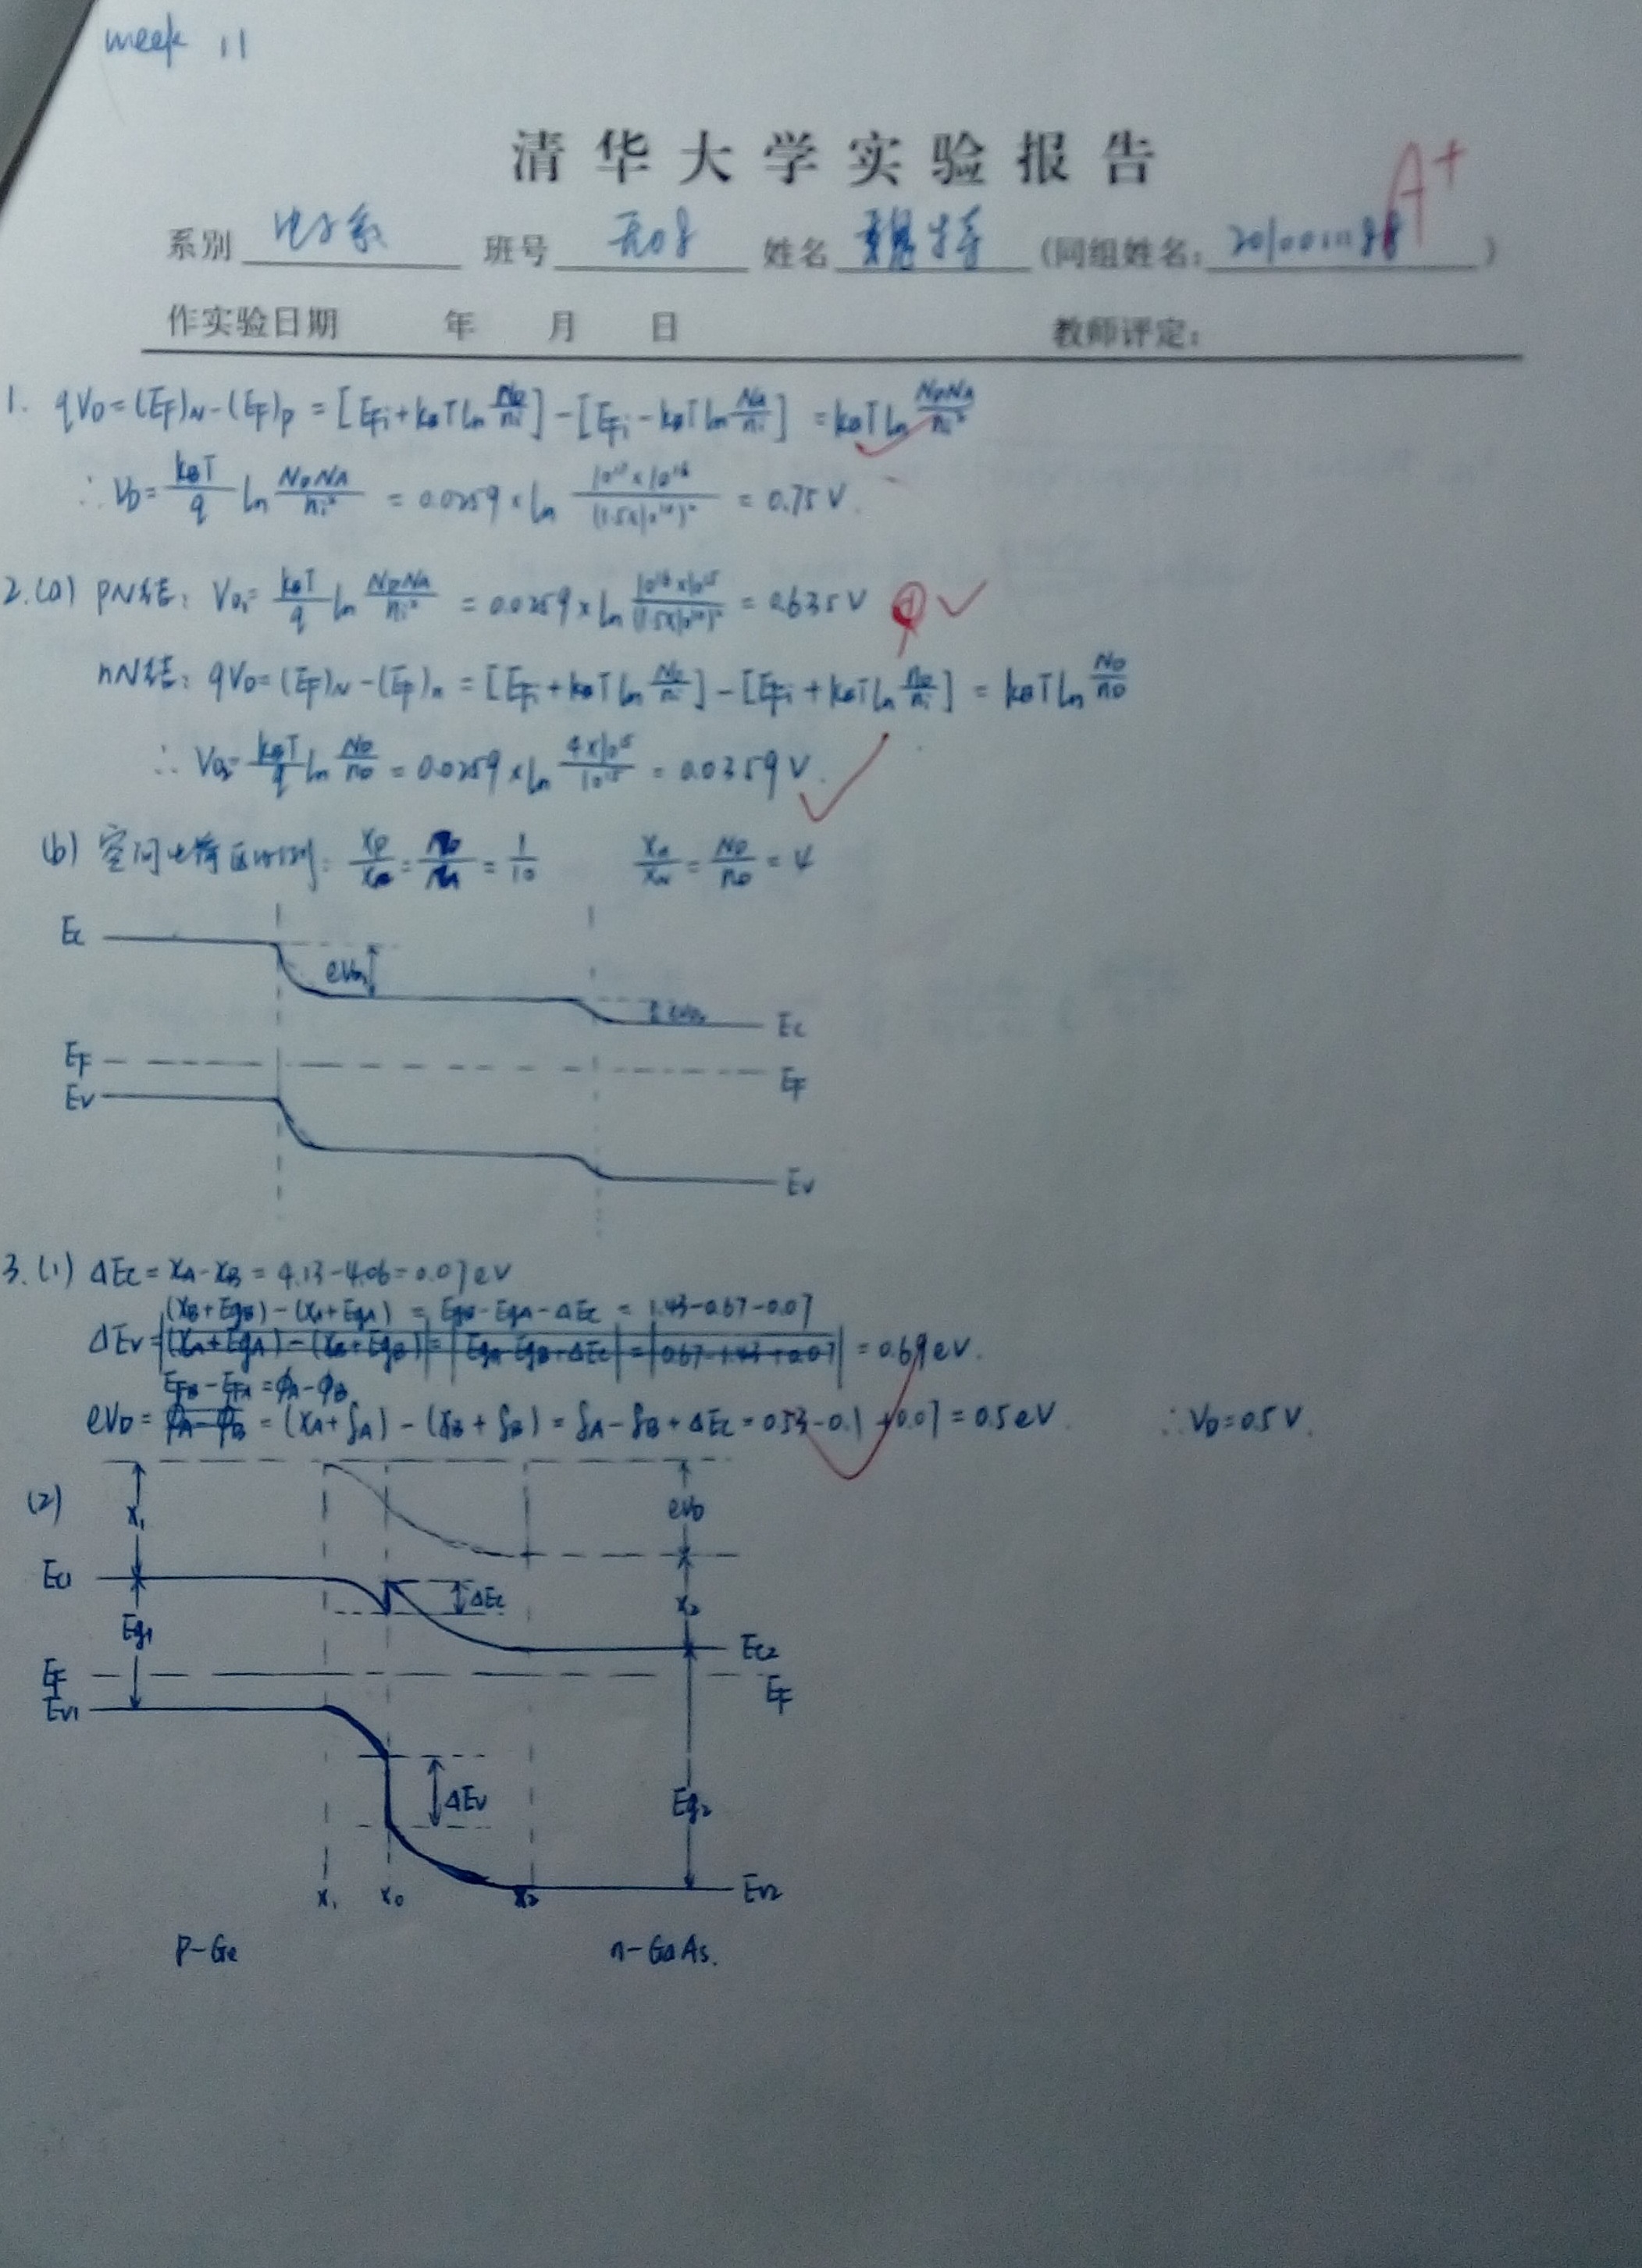 week 11
清华大学实验报告
A+
系别 电子系 班号 无08 姓名 (同组姓名: )
作实验日期 年 月 日 教师评定:
1. qVD=(EF)N-(EF)P = [EFi+kBT ln ND/ni]-[EFi-kBT ln NA/ni] = kBT ln NDNA/ni²
∴ VD= kBT/q ln NDNA/ni² = 0.0259 × ln 10¹⁷×10¹⁶/(1.5×10¹⁰)² = 0.75 V.
2.(a) PN结: VD1= kBT/q ln NDNA/ni² = 0.0259 × ln 10¹⁶×10¹⁵/(1.5×10¹⁰)² = 0.635 V
nN结: qVD=(EF)N-(EF)n = [EFi+kBT ln ND/ni]-[EFi+kBT ln nD/ni] = kBT ln ND/nD
∴ VD2= kBT/q ln ND/nD = 0.0259 × ln 4×10¹⁵/10¹⁵ = 0.0359 V.
(b) 空间电荷区: = 1/10 xn/xN = ND/nD = 4
Ec
eVD1
eVD2
Ec
EF
EF
Ev
Ev
3.(1) ΔEc = χA-χB = 4.13-4.06=0.07eV
(χB+EgB)-(χA+EgA) = EgB-EgA-ΔEc = 1.43-0.67-0.07
ΔEv = |(χA+EgA)-(χB+EgB)| = |EgA-EgB+ΔEc| = |0.67-1.43+0.07| = 0.69eV.
EFB-EFA=ϕA-ϕB
eVD = ϕA-ϕB = (χA+δA)-(χB+δB) = δA-δB+ΔEc = 0.53-0.1+0.07 = 0.5eV. ∴VD=0.5V.
(2)
χ1
eVD
Ec1
ΔEc
χ2
Eg1
Ec2
EF
EF
Ev1
ΔEv
Eg2
x1 x0 x2
Ev2
P-Ge
n-GaAs.